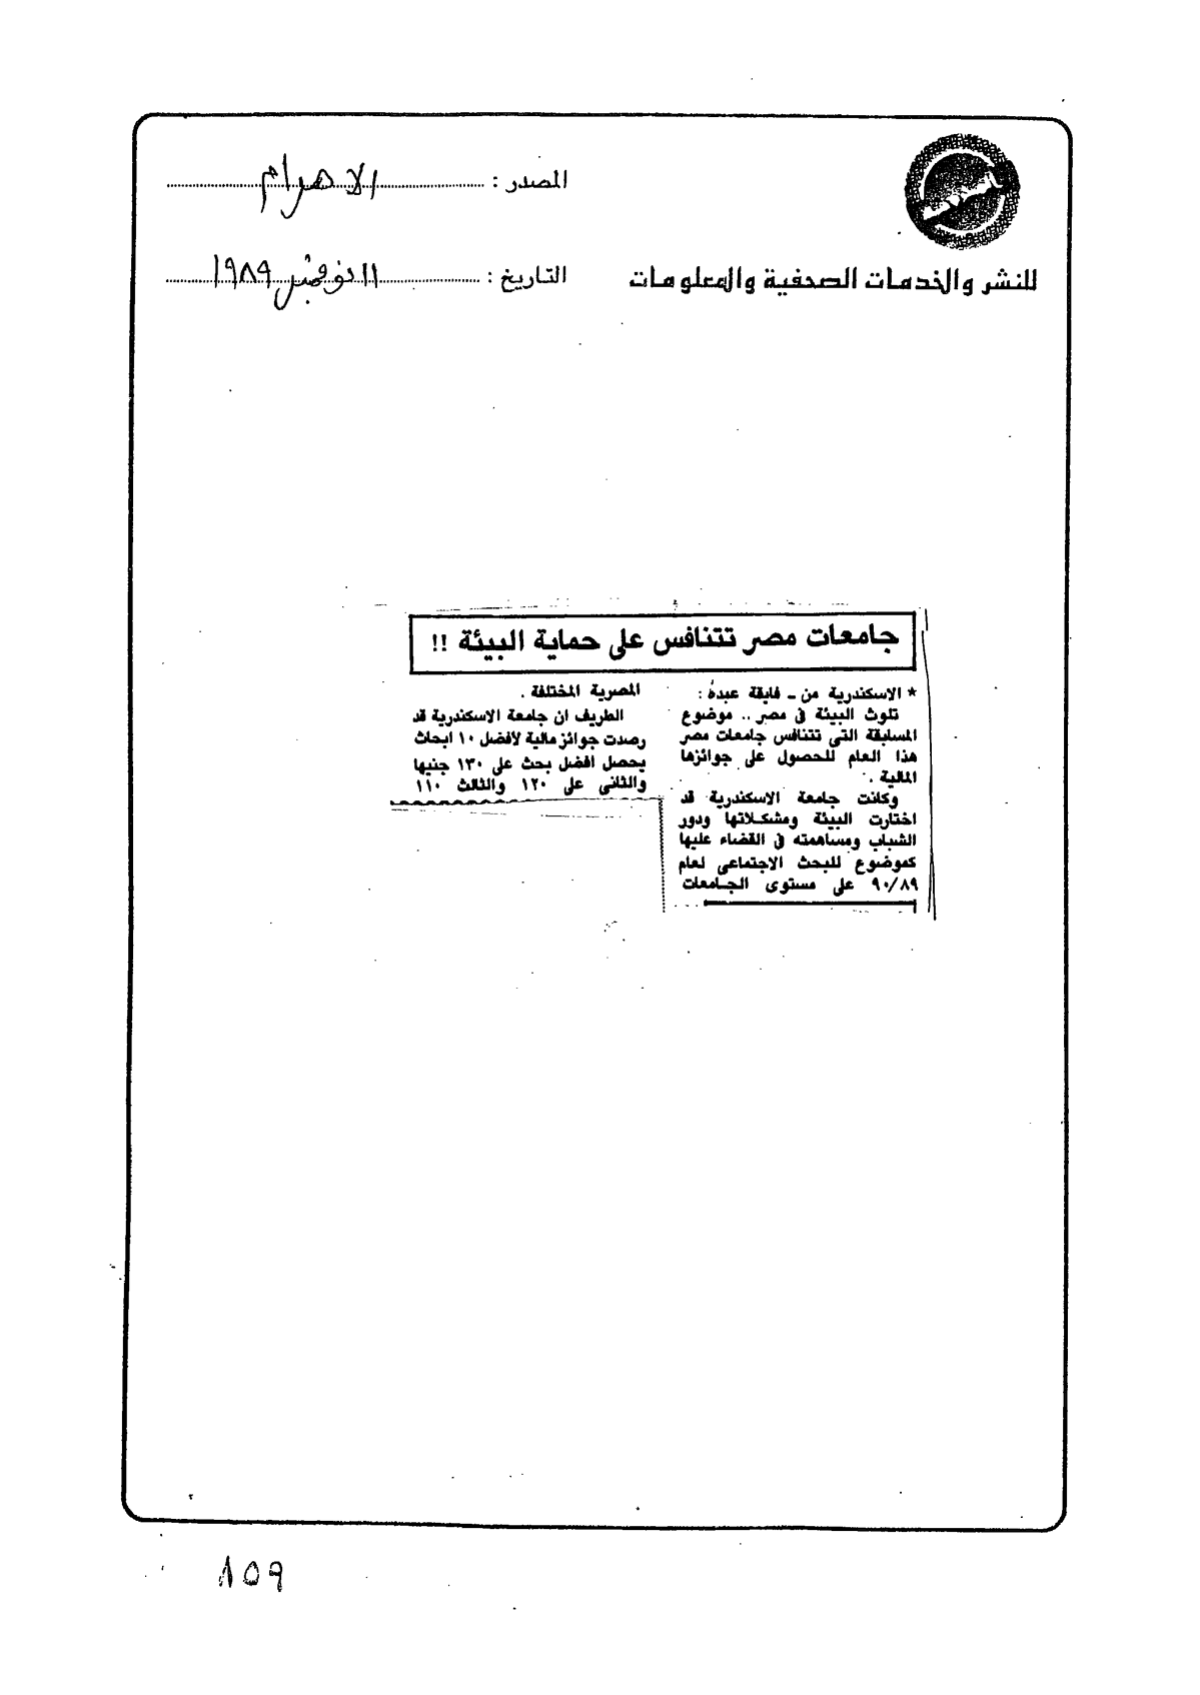 المصدر : الاهرام
للنشر والخدمات الصحفية والمعلومات
التاريخ : ١١ نوفمبر ١٩٨٩
جامعات مصر تتنافس على حماية البيئة !!
* الاسكندرية من ـ فايقة عبده :
تلوث البيئة فى مصر .. موضوع
المسابقة التى تتنافس جامعات مصر
هذا العام للحصول على جوائزها
المالية .
وكانت جامعة الاسكندرية قد
اختارت البيئة ومشكلاتها ودور
الشباب ومساهمته فى القضاء عليها
كموضوع للبحث الاجتماعى لعام
٩٠/٨٩ على مستوى الجامعات
المصرية المختلفة .
الطريف ان جامعة الاسكندرية قد
رصدت جوائز مالية لافضل ١٠ ابحاث
يحصل افضل بحث على ١٣٠ جنيها
والثانى على ١٢٠ والثالث ١١٠
٨٥٩